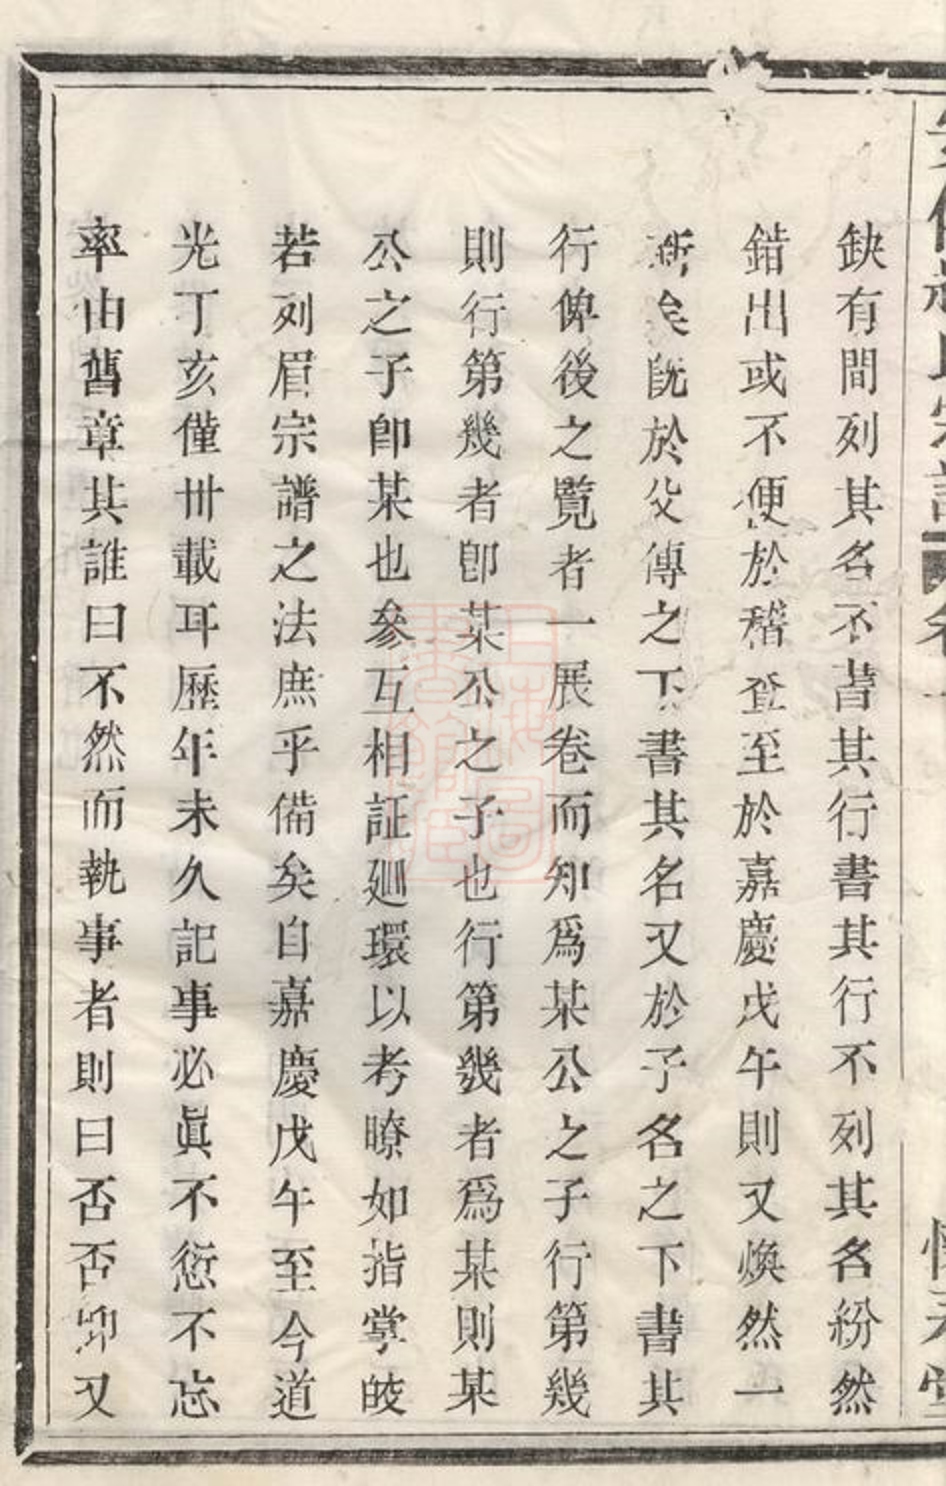 缺有間列其名不書其行書其行不列其名紛然
錯出或不便於稽查至於嘉慶戊午則又煥然一
新矣旣於父傳之下書其名又於子名之下書其
行俾後之覽者一展卷而知爲某公之子行第幾
則行第幾者卽某公之子也行第幾者爲某則某
公之子卽某也參互相証廻環以考瞭如指掌皎
若列眉宗譜之法庶乎備矣自嘉慶戊午至今道
光丁亥僅卅載耳歷年未久記事必眞不愆不忘
率由舊章其誰曰不然而執事者則曰否否卯又